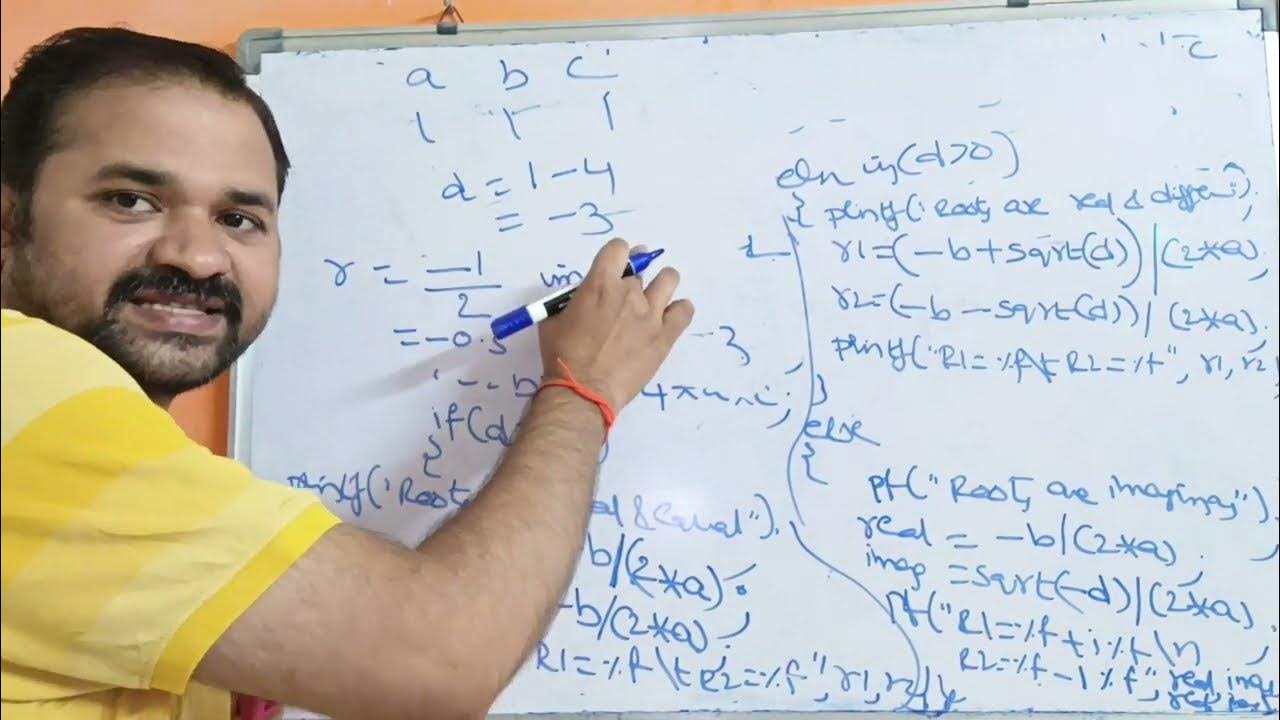 a b c
1 1 1
d = 1 - 4
= -3
r = -1
2
= -0.5
-3
if(d
{
printf("Roots
al & Equal").
b/(2*a)
-b/(2*a)
R1=%f\t R2=%f", r1, r2); }
else if(d>0)
{ printf("Roots are real &
r1=(-b+sqrt(d))/(2*a)
r2=(-b-sqrt(d))/(2*a).
printf("R1=%f\t R2=%f", r1, r2
}
else
{
pf("Roots are imaginary").
real = -b/(2*a).
imag = sqrt(-d)/(2*a)
pf("R1=%f+i%f\n
R2=%f-i%f", real, imag